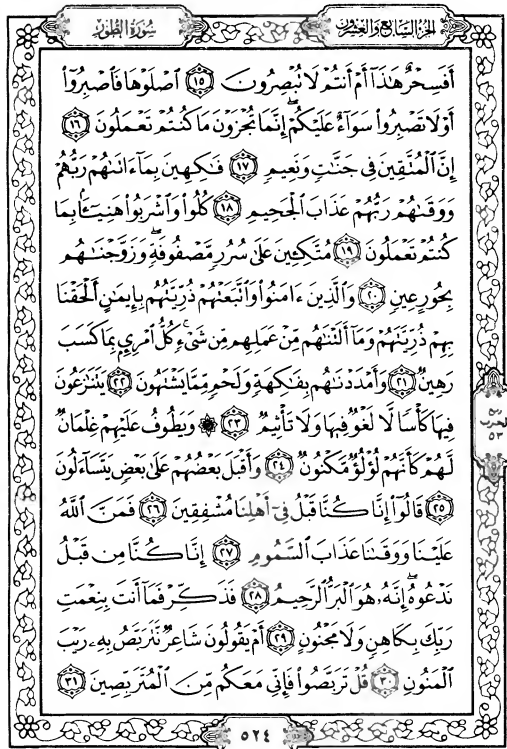 سُورَةُ الطُّورِ
الجُزءُ السَّابِعُ وَالعِشرُونَ
أَفَسِحْرٌ هَٰذَآ أَمْ أَنتُمْ لَا تُبْصِرُونَ ١٥ ٱصْلَوْهَا فَٱصْبِرُوٓا۟
أَوْ لَا تَصْبِرُوا۟ سَوَآءٌ عَلَيْكُمْ ۖ إِنَّمَا تُجْزَوْنَ مَا كُنتُمْ تَعْمَلُونَ ١٦
إِنَّ ٱلْمُتَّقِينَ فِى جَنَّٰتٍ وَنَعِيمٍ ١٧ فَٰكِهِينَ بِمَآ ءَاتَىٰهُمْ رَبُّهُمْ
وَوَقَىٰهُمْ رَبُّهُمْ عَذَابَ ٱلْجَحِيمِ ١٨ كُلُوا۟ وَٱشْرَبُوا۟ هَنِيٓـًٔۢا بِمَا
كُنتُمْ تَعْمَلُونَ ١٩ مُتَّكِـِٔينَ عَلَىٰ سُرُرٍ مَّصْفُوفَةٍ ۖ وَزَوَّجْنَٰهُم
بِحُورٍ عِينٍ ٢٠ وَٱلَّذِينَ ءَامَنُوا۟ وَٱتَّبَعَتْهُمْ ذُرِّيَّتُهُم بِإِيمَٰنٍ أَلْحَقْنَا
بِهِمْ ذُرِّيَّتَهُمْ وَمَآ أَلَتْنَٰهُم مِّنْ عَمَلِهِم مِّن شَىْءٍ ۚ كُلُّ ٱمْرِئٍۭ بِمَا كَسَبَ
رَهِينٌ ٢١ وَأَمْدَدْنَٰهُم بِفَٰكِهَةٍ وَلَحْمٍ مِّمَّا يَشْتَهُونَ ٢٢ يَتَنَٰزَعُونَ
فِيهَا كَأْسًا لَّا لَغْوٌ فِيهَا وَلَا تَأْثِيمٌ ٢٣ ۞ وَيَطُوفُ عَلَيْهِمْ غِلْمَانٌ
لَّهُمْ كَأَنَّهُمْ لُؤْلُؤٌ مَّكْنُونٌ ٢٤ وَأَقْبَلَ بَعْضُهُمْ عَلَىٰ بَعْضٍ يَتَسَآءَلُونَ
٢٥ قَالُوٓا۟ إِنَّا كُنَّا قَبْلُ فِىٓ أَهْلِنَا مُشْفِقِينَ ٢٦ فَمَنَّ ٱللَّهُ
عَلَيْنَا وَوَقَىٰنَا عَذَابَ ٱلسَّمُومِ ٢٧ إِنَّا كُنَّا مِن قَبْلُ
نَدْعُوهُ ۖ إِنَّهُۥ هُوَ ٱلْبَرُّ ٱلرَّحِيمُ ٢٨ فَذَكِّرْ فَمَآ أَنتَ بِنِعْمَتِ
رَبِّكَ بِكَاهِنٍ وَلَا مَجْنُونٍ ٢٩ أَمْ يَقُولُونَ شَاعِرٌ نَّتَرَبَّصُ بِهِۦ رَيْبَ
ٱلْمَنُونِ ٣٠ قُلْ تَرَبَّصُوا۟ فَإِنِّى مَعَكُم مِّنَ ٱلْمُتَرَبِّصِينَ ٣١
ربع
الحزب
٥٣
٥٢٤